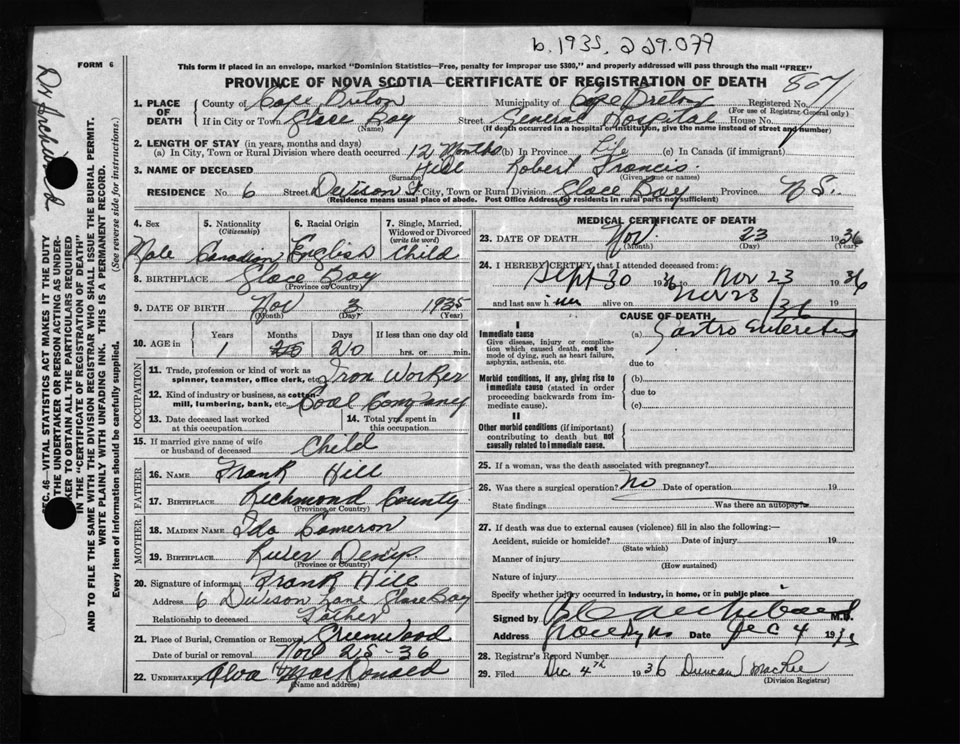 b. 1935, 229.079
FORM 6
This form if placed in an envelope, marked "Dominion Statistics—Free, penalty for improper use $300," and properly addressed will pass through the mail "FREE"
PROVINCE OF NOVA SCOTIA—CERTIFICATE OF REGISTRATION OF DEATH
807
1. PLACE OF DEATH
County of Cape Breton Municipality of Cape Breton Registered No.
(For use of Registrar General only)
If in City or Town Glace Bay Street General Hospital House No.
(Name) (If death occurred in a hospital or institution, give the name instead of street and number)
2. LENGTH OF STAY (in years, months and days)
(a) In City, Town or Rural Division where death occurred 12 Months (b) In Province Life (c) In Canada (if immigrant)
3. NAME OF DECEASED Hill Robert Francis
(Surname) (Given name or names)
RESIDENCE No. 6 Street Davison St City, Town or Rural Division Glace Bay Province N S.
(Residence means usual place of abode. Post Office Address for residents in rural parts not sufficient)
4. Sex
Male
5. Nationality
(Citizenship)
Canadian
6. Racial Origin
English
7. Single, Married, Widowed or Divorced
(write the word)
Child
8. BIRTHPLACE Glace Bay
(Province or Country)
9. DATE OF BIRTH Nov 3 1935
(Month) (Day) (Year)
10. AGE in Years Months Days If less than one day old
1 20 hrs. or min.
OCCUPATION
11. Trade, profession or kind of work as spinner, teamster, office clerk, etc. Iron Worker
12. Kind of industry or business, as cotton mill, lumbering, bank, etc. Coal Company
13. Date deceased last worked at this occupation
14. Total yrs. spent in this occupation
15. If married give name of wife or husband of deceased Child
FATHER
16. NAME Frank Hill
17. BIRTHPLACE Richmond County
(Province or Country)
MOTHER
18. MAIDEN NAME Ida Cameron
19. BIRTHPLACE River Denys
(Province or Country)
20. Signature of informant Frank Hill
Address 6 Davison Lane Glace Bay
Relationship to deceased Father
21. Place of Burial, Cremation or Removal Greenwood
Date of burial or removal Nov 25-36
22. UNDERTAKER Alva H MacDonald
(Name and address)
MEDICAL CERTIFICATE OF DEATH
23. DATE OF DEATH Nov. 23 1936
(Month) (Day) (Year)
24. I HEREBY CERTIFY, that I attended deceased from:
Sept 30 1936 to Nov 23 1936
and last saw him alive on Nov 23/36 19
CAUSE OF DEATH
I
Immediate cause
Give disease, injury or complication which caused death, not the mode of dying, such as heart failure, asphyxia, asthenia, etc.
(a) Gastro Enteritis
due to
Morbid conditions, if any, giving rise to immediate cause (stated in order proceeding backwards from immediate cause).
(b)
due to
(c)
II
Other morbid conditions (if important) contributing to death but not causally related to immediate cause.
25. If a woman, was the death associated with pregnancy?
26. Was there a surgical operation? No Date of operation 19
State findings Was there an autopsy?
27. If death was due to external causes (violence) fill in also the following:—
Accident, suicide or homicide? Date of injury 19
(State which)
Manner of injury
(How sustained)
Nature of injury
Specify whether injury occurred in industry, in home, or in public place
Signed by M.D.
Address Date Dec 4 19
28. Registrar's Record Number
29. Filed Dec 4th 1936 Duncan J MacRae
(Division Registrar)
Dr Archibald
SEC. 46—VITAL STATISTICS ACT MAKES IT THE DUTY
OF THE UNDERTAKER OR PERSON ACTING AS UNDERTAKER TO OBTAIN ALL THE PARTICULARS REQUIRED
IN THE "CERTIFICATE OF REGISTRATION OF DEATH"
AND TO FILE THE SAME WITH THE DIVISION REGISTRAR WHO SHALL ISSUE THE BURIAL PERMIT.
WRITE PLAINLY WITH UNFADING INK. THIS IS A PERMANENT RECORD.
Every item of information should be carefully supplied. (See reverse side for instructions.)